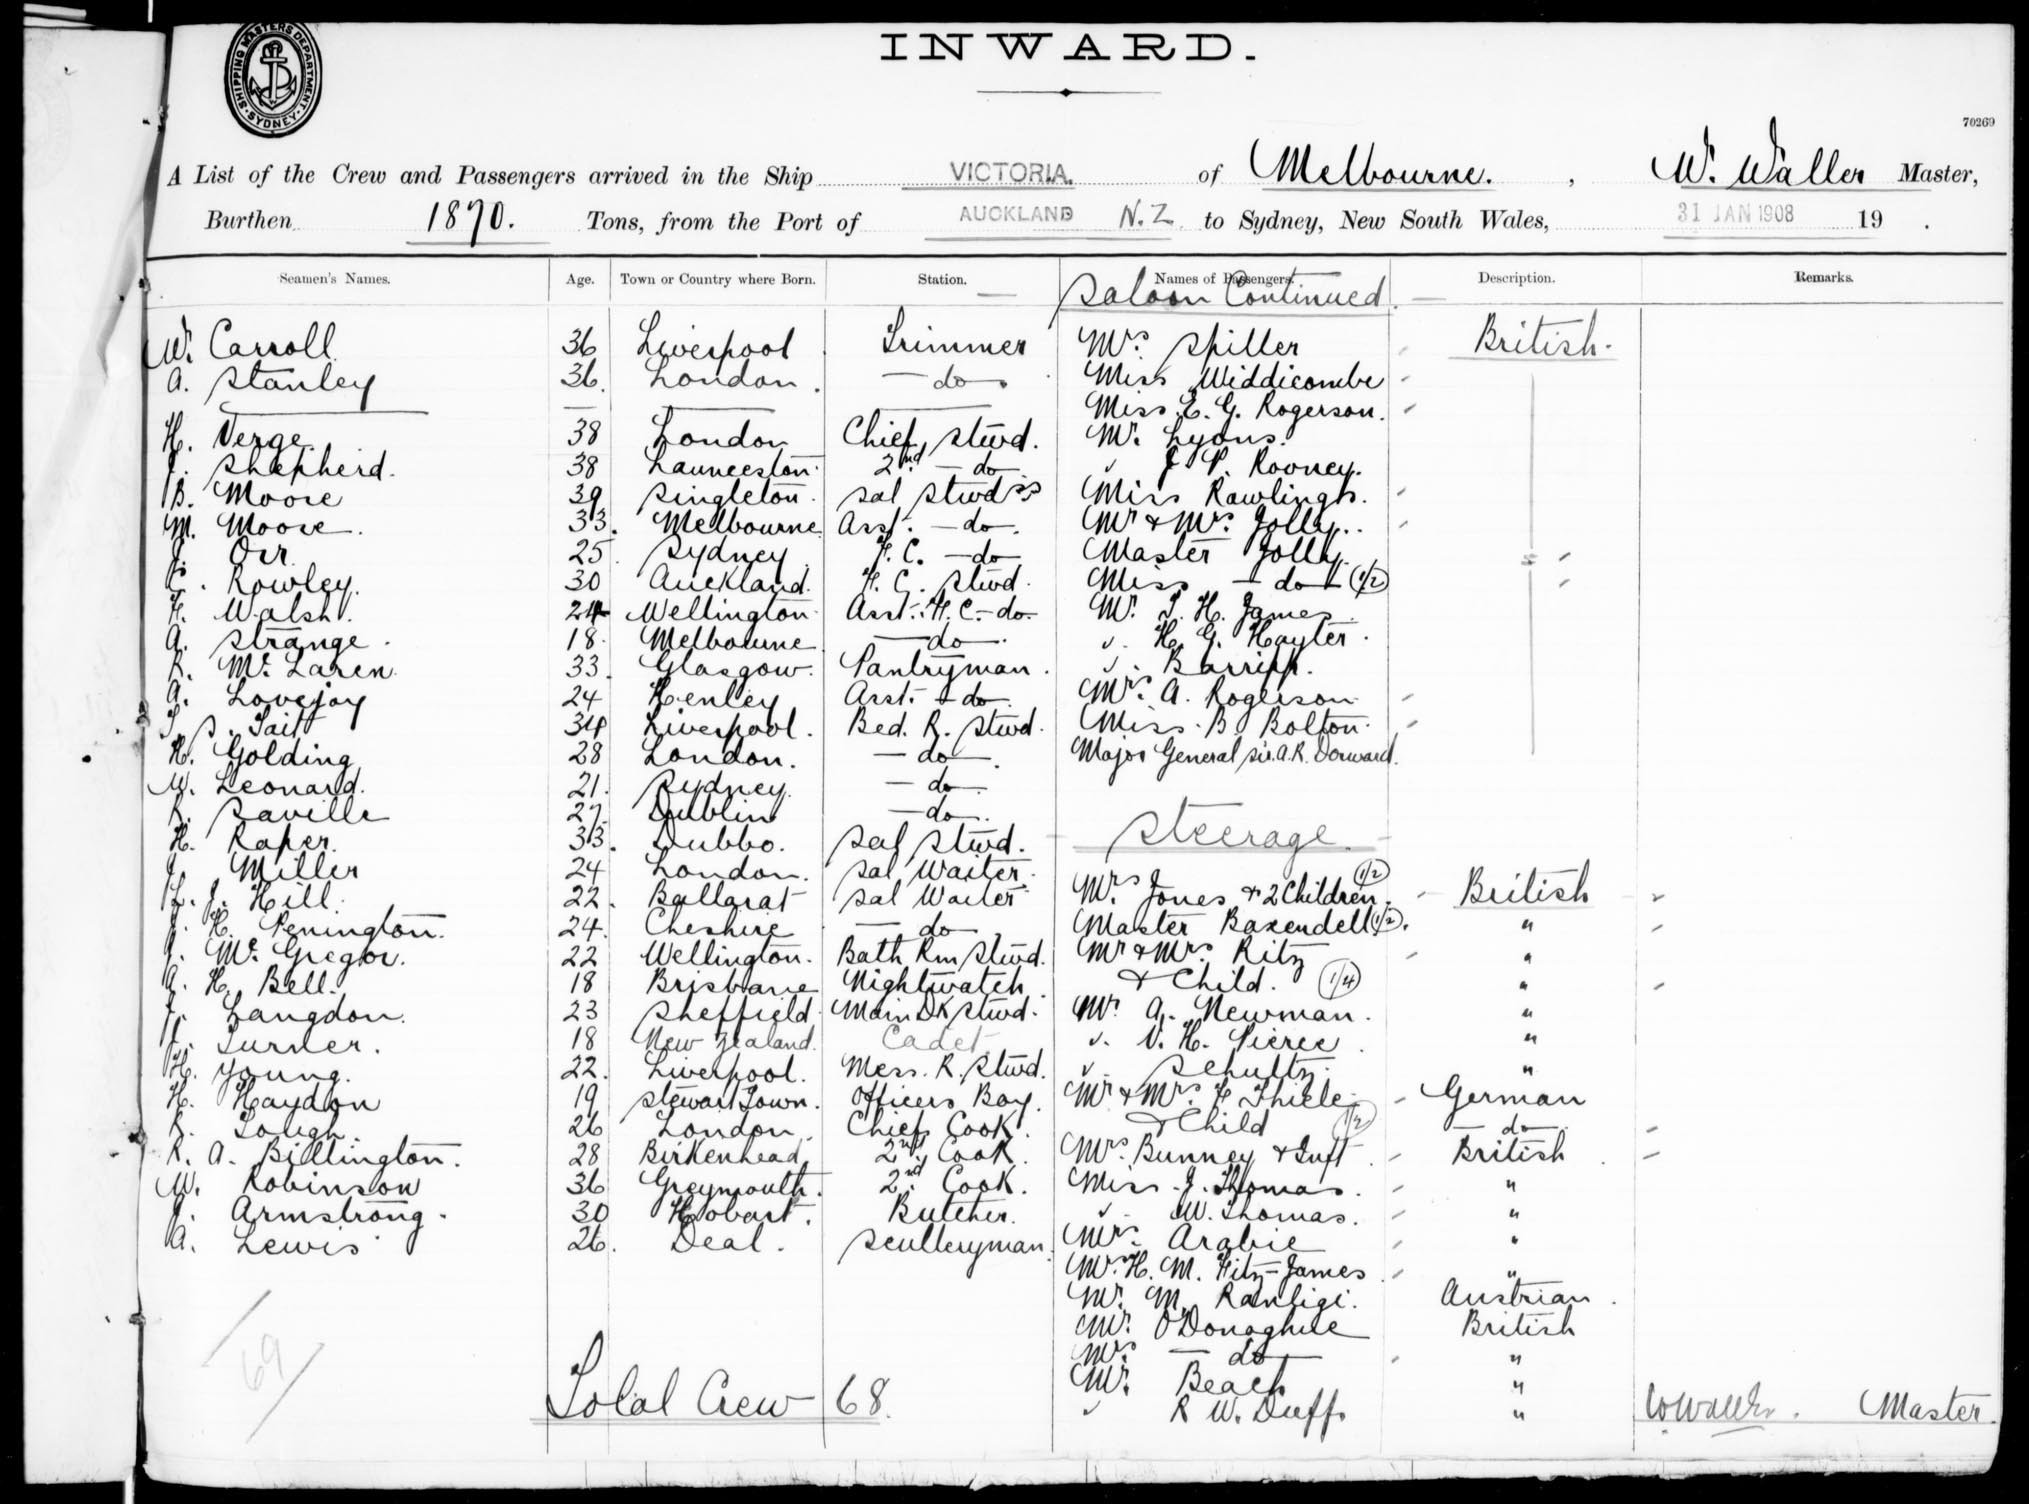 INWARD.
SHIPPING MASTERS DEPARTMENT. SYDNEY.
70269
A List of the Crew and Passengers arrived in the Ship VICTORIA. of Melbourne. , W. Waller Master,
Burthen 1870. Tons, from the Port of AUCKLAND N.Z. to Sydney, New South Wales, 31 JAN 1908 19 .
Seamen's Names. Age. Town or Country where Born. Station. Names of Passengers. Description. Remarks.
Saloon Continued
W. Carroll 36 Liverpool Trimmer Mrs Spiller British.
A. Stanley 36. London. do Miss Widdicombe
Miss E. G. Rogerson.
H. Verge 38 London Chief Stwd. Mr. Lyons.
J. Shepherd. 38 Launceston 2nd do " J P. Rooney.
B. Moore 39 Singleton Sal Stwdss Miss Rawlings.
M. Moore. 33. Melbourne Asst. do. Mr & Mrs. Jolly.
J. Orr 25 Sydney F. C. do Master Jolly
C. Rowley. 30 Auckland. F. C. Stwd. Miss do (1/2)
F. Walsh. 24 Wellington Asst. F. C. do. Mr. T. H. James
A. Strange. 18. Melbourne do. " H. G. Hayter.
R. Mc Laren 33. Glasgow. Pantryman. " Barripp.
A. Lovejoy 24 Henley Asst. do. Mrs. A. Rogerson
T. S. Tait 34 Liverpool. Bed. R. Stwd. Miss. B. Bolton.
H. Golding 28 London. do. Major General Sir. A. R. Dorward.
W. Leonard. 21. Sydney. do
R. Saville 27. Dublin do.
H. Raper. 33. Dubbo. Sal Stwd. Steerage.
J. Miller 24 London. Sal Waiter.
L. J. Hill. 22. Ballarat Sal Waiter Mrs Jones & 2 Children. (1/2) British
J. H. Penington. 24. Cheshire do Master Baxendell (1/2). "
J. Mc Gregor. 22 Wellington. Bath Rm Stwd. Mr & Mrs. Ritz "
A. H. Bell. 18 Brisbane Nightwatch & Child. (1/4) "
J. Langdon. 23 Sheffield Main Dk Stwd. Mr. A. Newman. "
J. Turner. 18 New Zealand. Cadet. " V. H. Pierce. "
H. Young. 22. Liverpool. Mess. R. Stwd. " Schultz. "
H. Haydon 19 Stewart Town. Officers Boy. Mr & Mrs F Thiele German
R. Tough. 26 London. Chief Cook. & Child (1/2) do
R. A. Billington. 28 Birkenhead 2nd Cook. Mrs. Bunney & Inft. British
W. Robinson 36 Greymouth. 2nd. Cook. Miss. J. Thomas. "
J. Armstrong. 30 Hobart. Butcher. " W. Thomas. "
A. Lewis 26. Deal. Sculleryman. Mrs. Arabie "
Mrs. H. M. Fitz-James "
Mr. M. Ranligi. Austrian.
Mr. O'Donoghue British
Mrs do "
Mr. Beach "
69 Total Crew 68. " R W. Duff. " W Waller. Master.